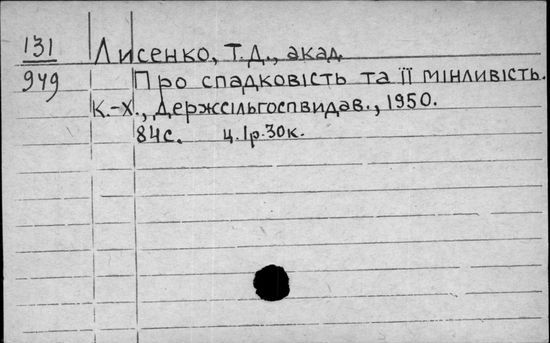 131 Лисенко, Т.Д., акад.
949 Про спадковість та її мінливість.
К.-Х., Держсільгоспвидав., 1950.
84с. ц.1р.30к.